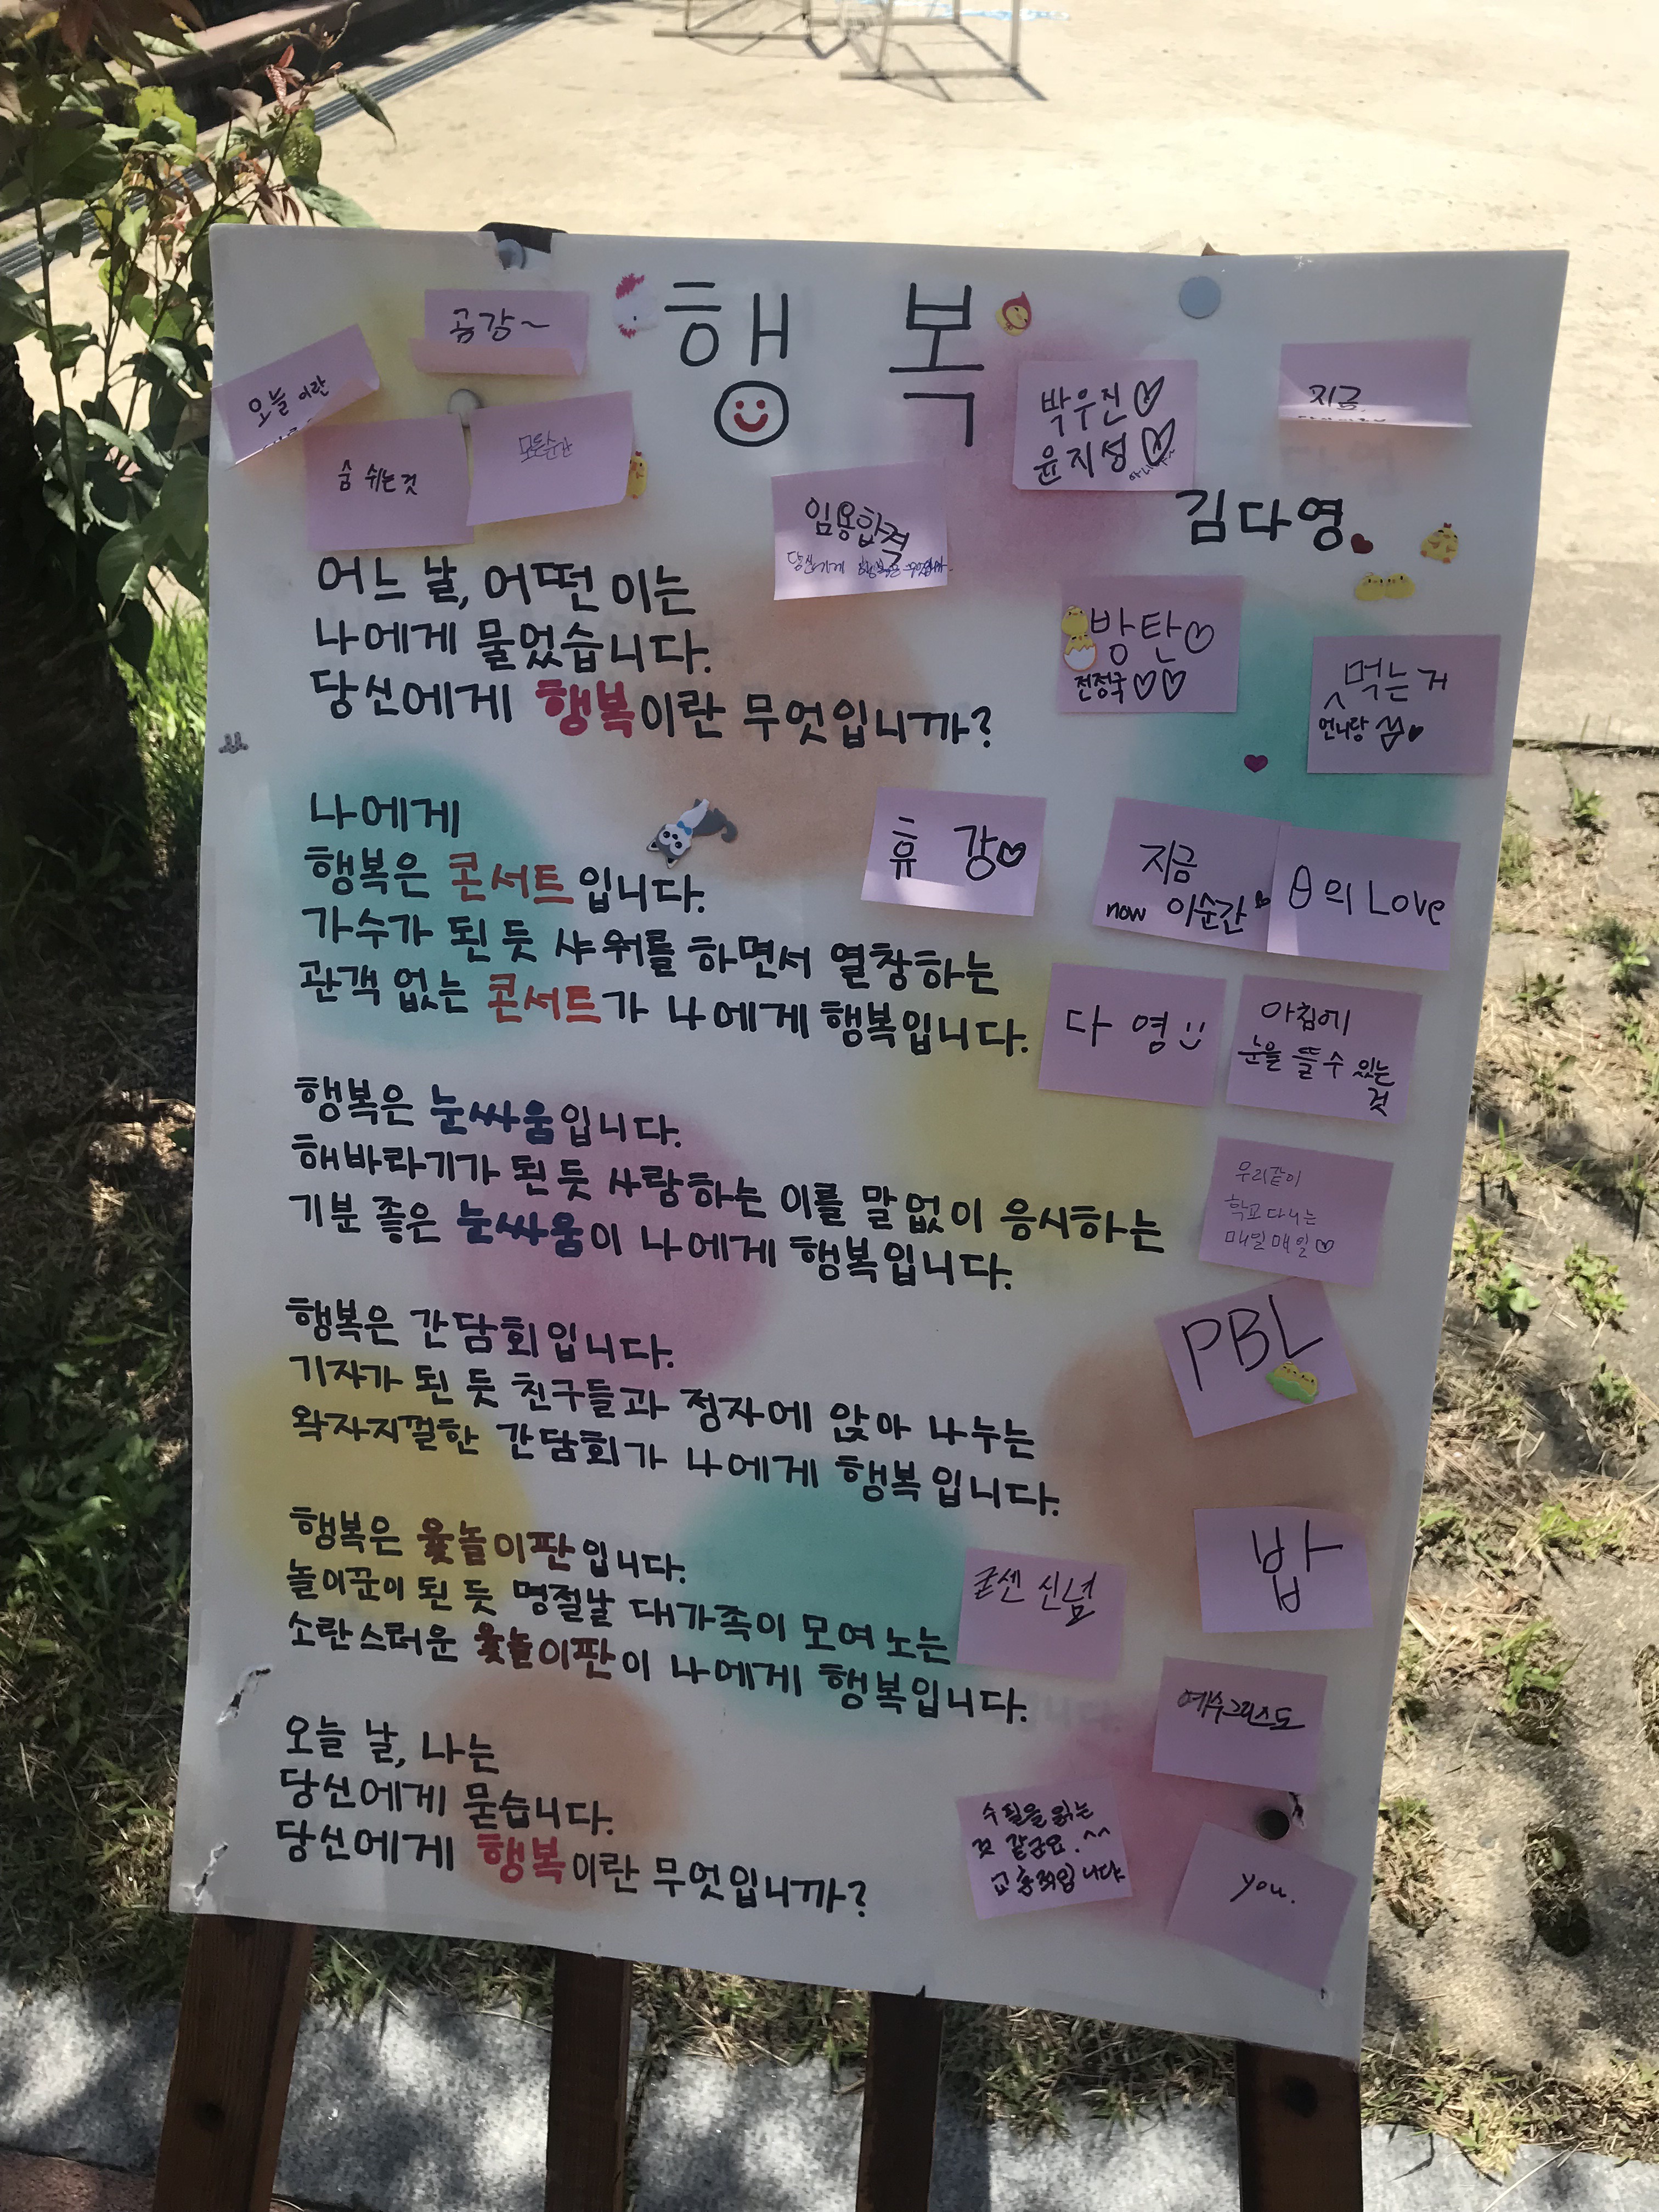 행 복
김다영
공강~
오늘 이란
숨 쉬는 것
모든순간
임용합격
당신에게 행복은 무엇입니까.
박우진♡
윤지성♡
지금
어느 날, 어떤 이는
나에게 물었습니다.
당신에게 행복이란 무엇입니까?
방탄♡
전정국♡♡
먹는 거
언니랑
나에게
행복은 콘서트입니다.
가수가 된 듯 샤워를 하면서 열창하는
관객 없는 콘서트가 나에게 행복입니다.
휴 강♡
지금
now 이순간
의 Love
다 영
아침에
눈을 뜰 수 있는
것
행복은 눈싸움입니다.
해바라기가 된 듯 사랑하는 이를 말 없이 응시하는
기분 좋은 눈싸움이 나에게 행복입니다.
우리같이
학교 다니는
매일매일♡
행복은 간담회입니다.
기자가 된 듯 친구들과 정자에 앉아 나누는
왁자지껄한 간담회가 나에게 행복입니다.
PBL
행복은 윷놀이판입니다.
놀이꾼이 된 듯 명절날 대가족이 모여 노는
소란스러운 윷놀이판이 나에게 행복입니다.
굳센 신념
밥
예수그리스도
오늘 날, 나는
당신에게 묻습니다.
당신에게 행복이란 무엇입니까?
수필을 읽는
것 같군요.^^
교훈적입니다
you.